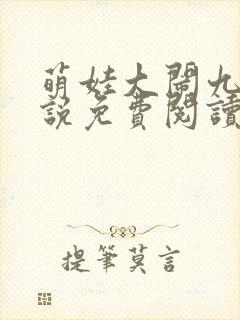 萌娃大闹九
說免費閱讀
提筆莫言